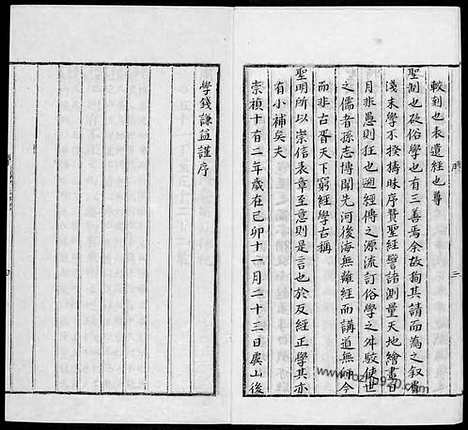 較刻也表遺經也尊
聖測也砭俗學也有三善焉余故狥其請而為之叙嘗
淺末學不揆擣昧序贊聖經譬諸測量天地繪畫日
月非愚則狂也遡經傳之源流訂俗學之舛駮使世
之儒者孫志博聞先河後海無離經而講道無師今
而非古胥天下窮經學古稱
聖明所以崇信表章至意則是言也於反經正學其亦
有小補矣夫
崇禎十有二年歲在己卯十一月二十三日虞山後
學錢謙益謹序
三
www.fozhp920.com